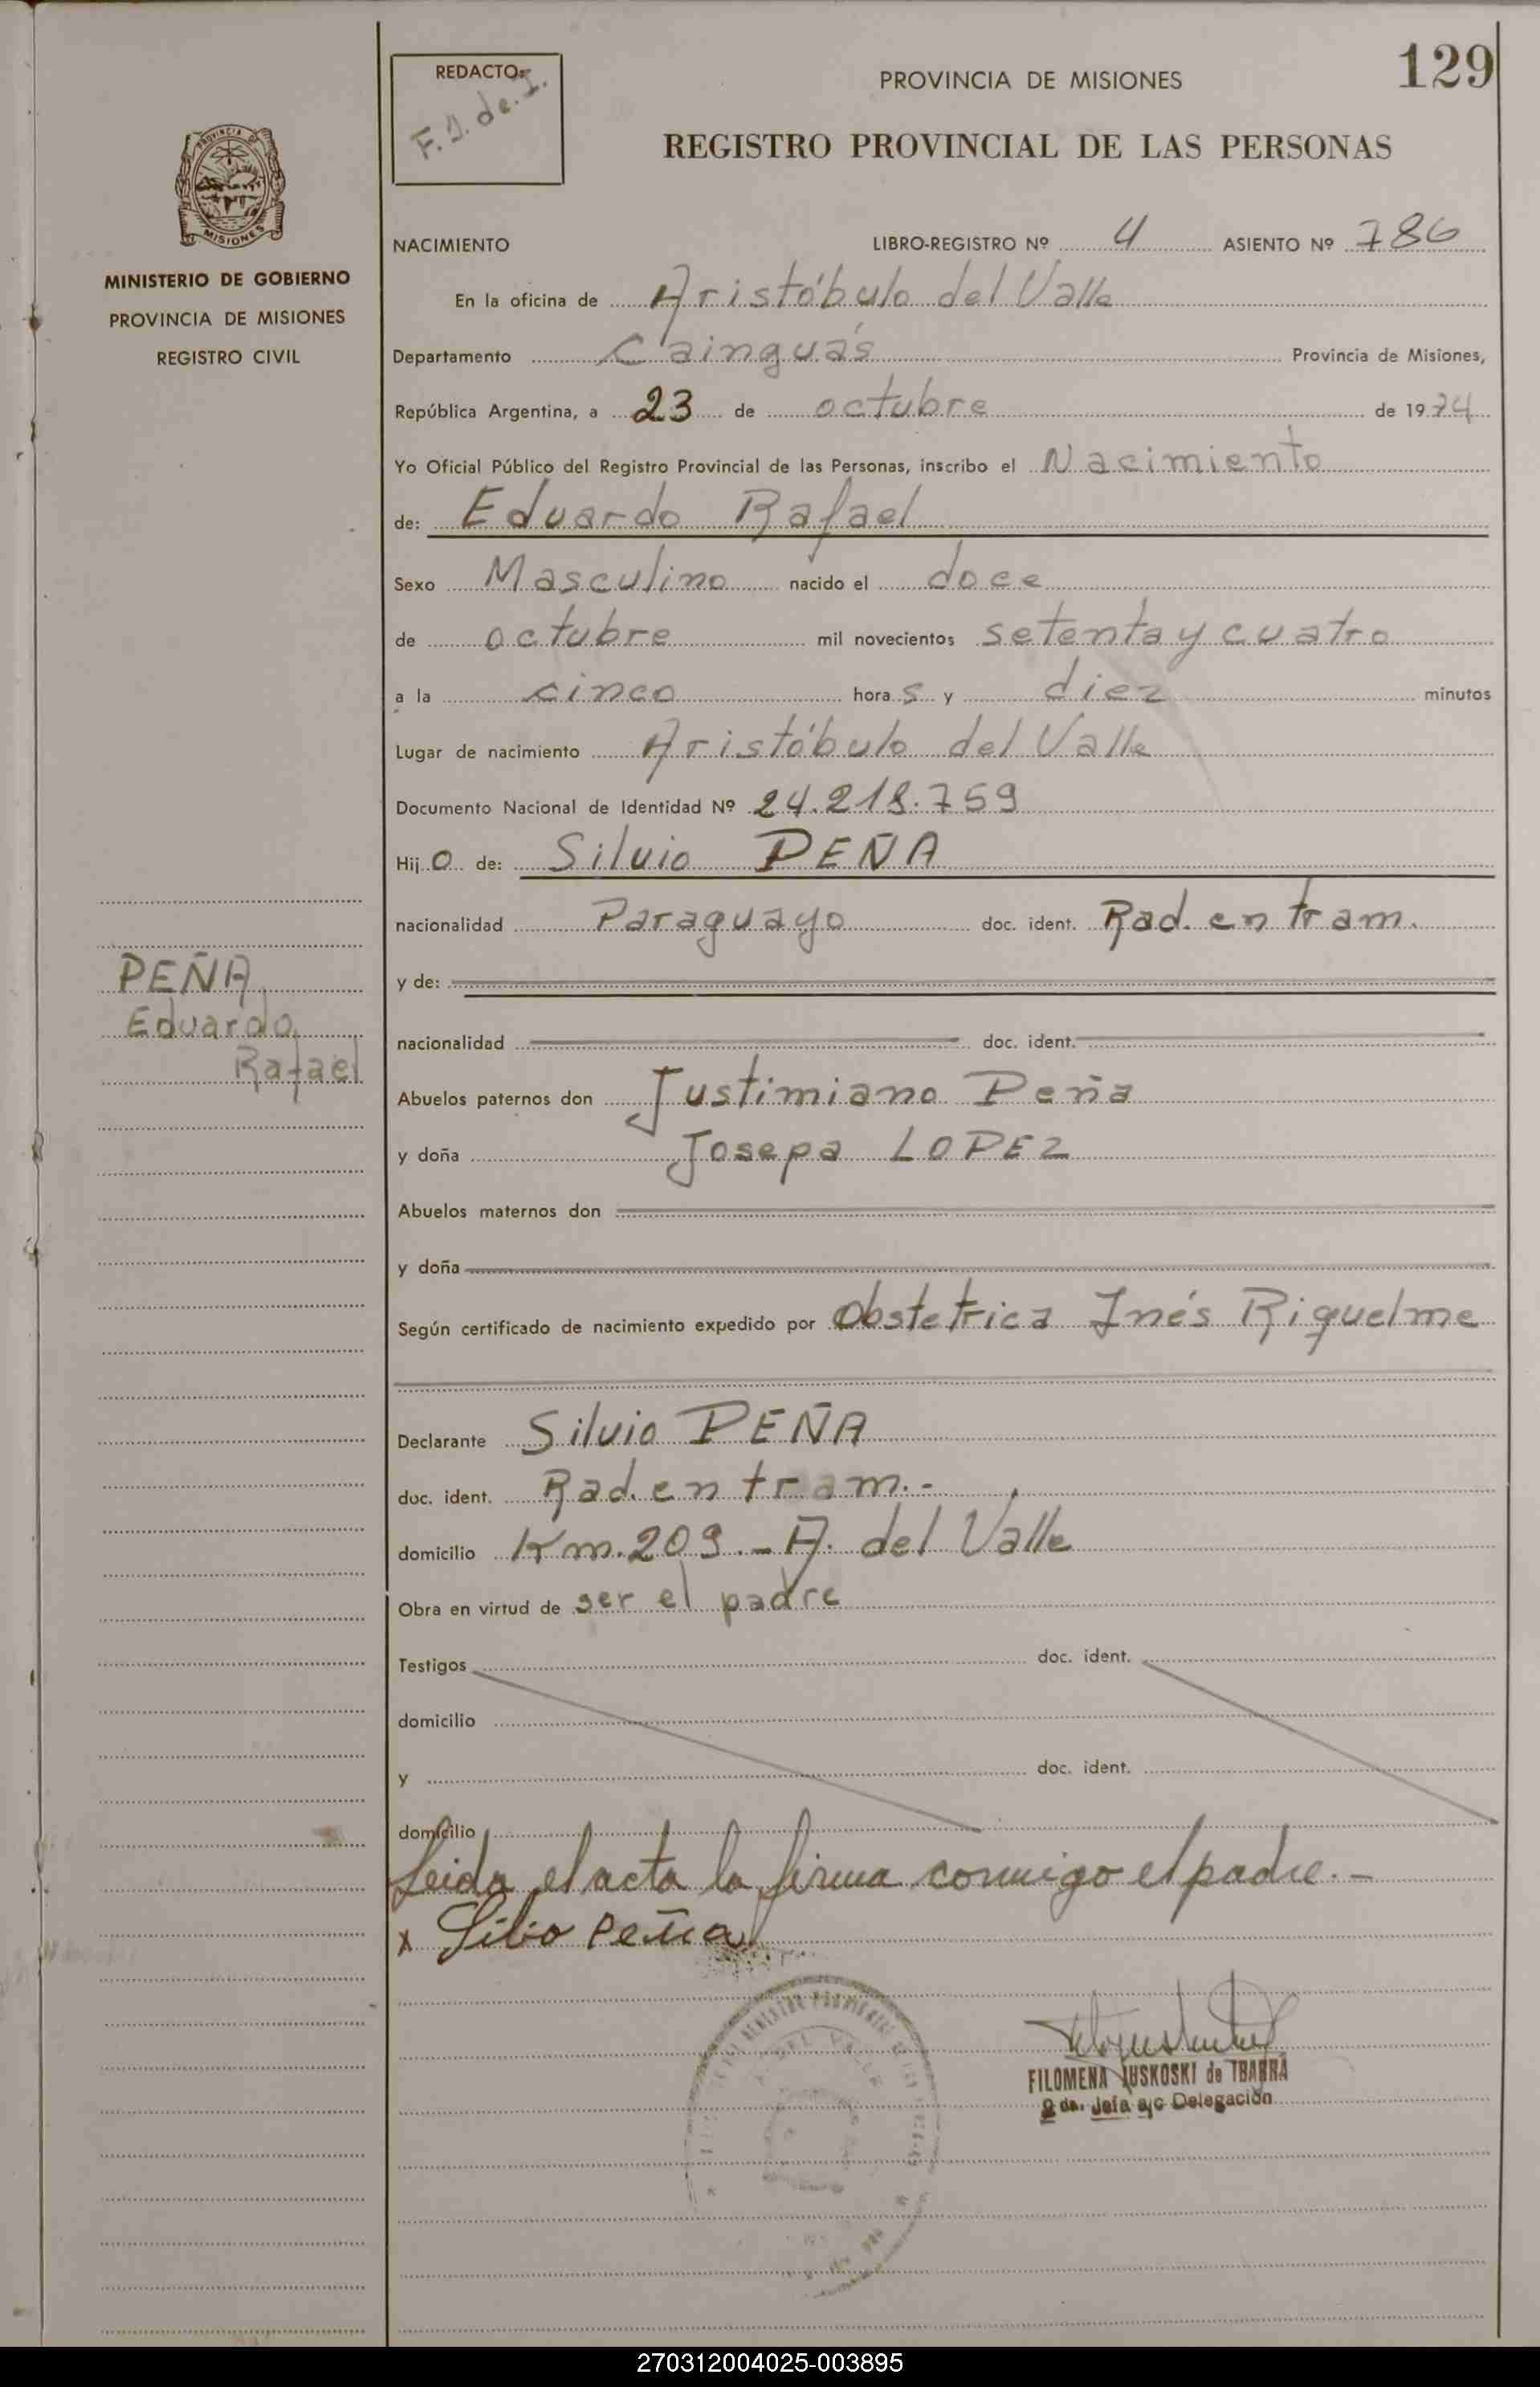 129
REDACTO:
F. J. de. I.
PROVINCIA DE MISIONES
REGISTRO PROVINCIAL DE LAS PERSONAS
PROVINCIA DE
MISIONES
MINISTERIO DE GOBIERNO
PROVINCIA DE MISIONES
REGISTRO CIVIL
NACIMIENTO LIBRO-REGISTRO Nº 4 ASIENTO Nº 786
En la oficina de Aristóbulo del Valle
Departamento Cainguás Provincia de Misiones,
República Argentina, a 23 de octubre de 1974
Yo Oficial Público del Registro Provincial de las Personas, inscribo el Nacimiento
de: Eduardo Rafael
Sexo Masculino nacido el doce
de octubre mil novecientos setenta y cuatro
a la cinco horas y diez minutos
Lugar de nacimiento Aristóbulo del Valle
Documento Nacional de Identidad Nº 24.218.759
Hijo de: Silvio PEÑA
nacionalidad Paraguayo doc. ident. Rad. en tram.
PEÑA
Eduardo
Rafael
y de:
nacionalidad doc. ident.
Abuelos paternos don Justimiano Peña
y doña Josepa LOPEZ
Abuelos maternos don
y doña
Según certificado de nacimiento expedido por Obstetrica Inés Riquelme
Declarante Silvio PEÑA
doc. ident. Rad. en tram.-
domicilio Km. 209.- A. del Valle
Obra en virtud de ser el padre
Testigos doc. ident.
domicilio
y doc. ident.
domicilio
Leida el acta la firma conmigo el padre.-
x Silbio Peña
DEL VALLE
FILOMENA JUSKOSKI de IBARRA
2 da. Jefa a/c Delegación
270312004025-003895